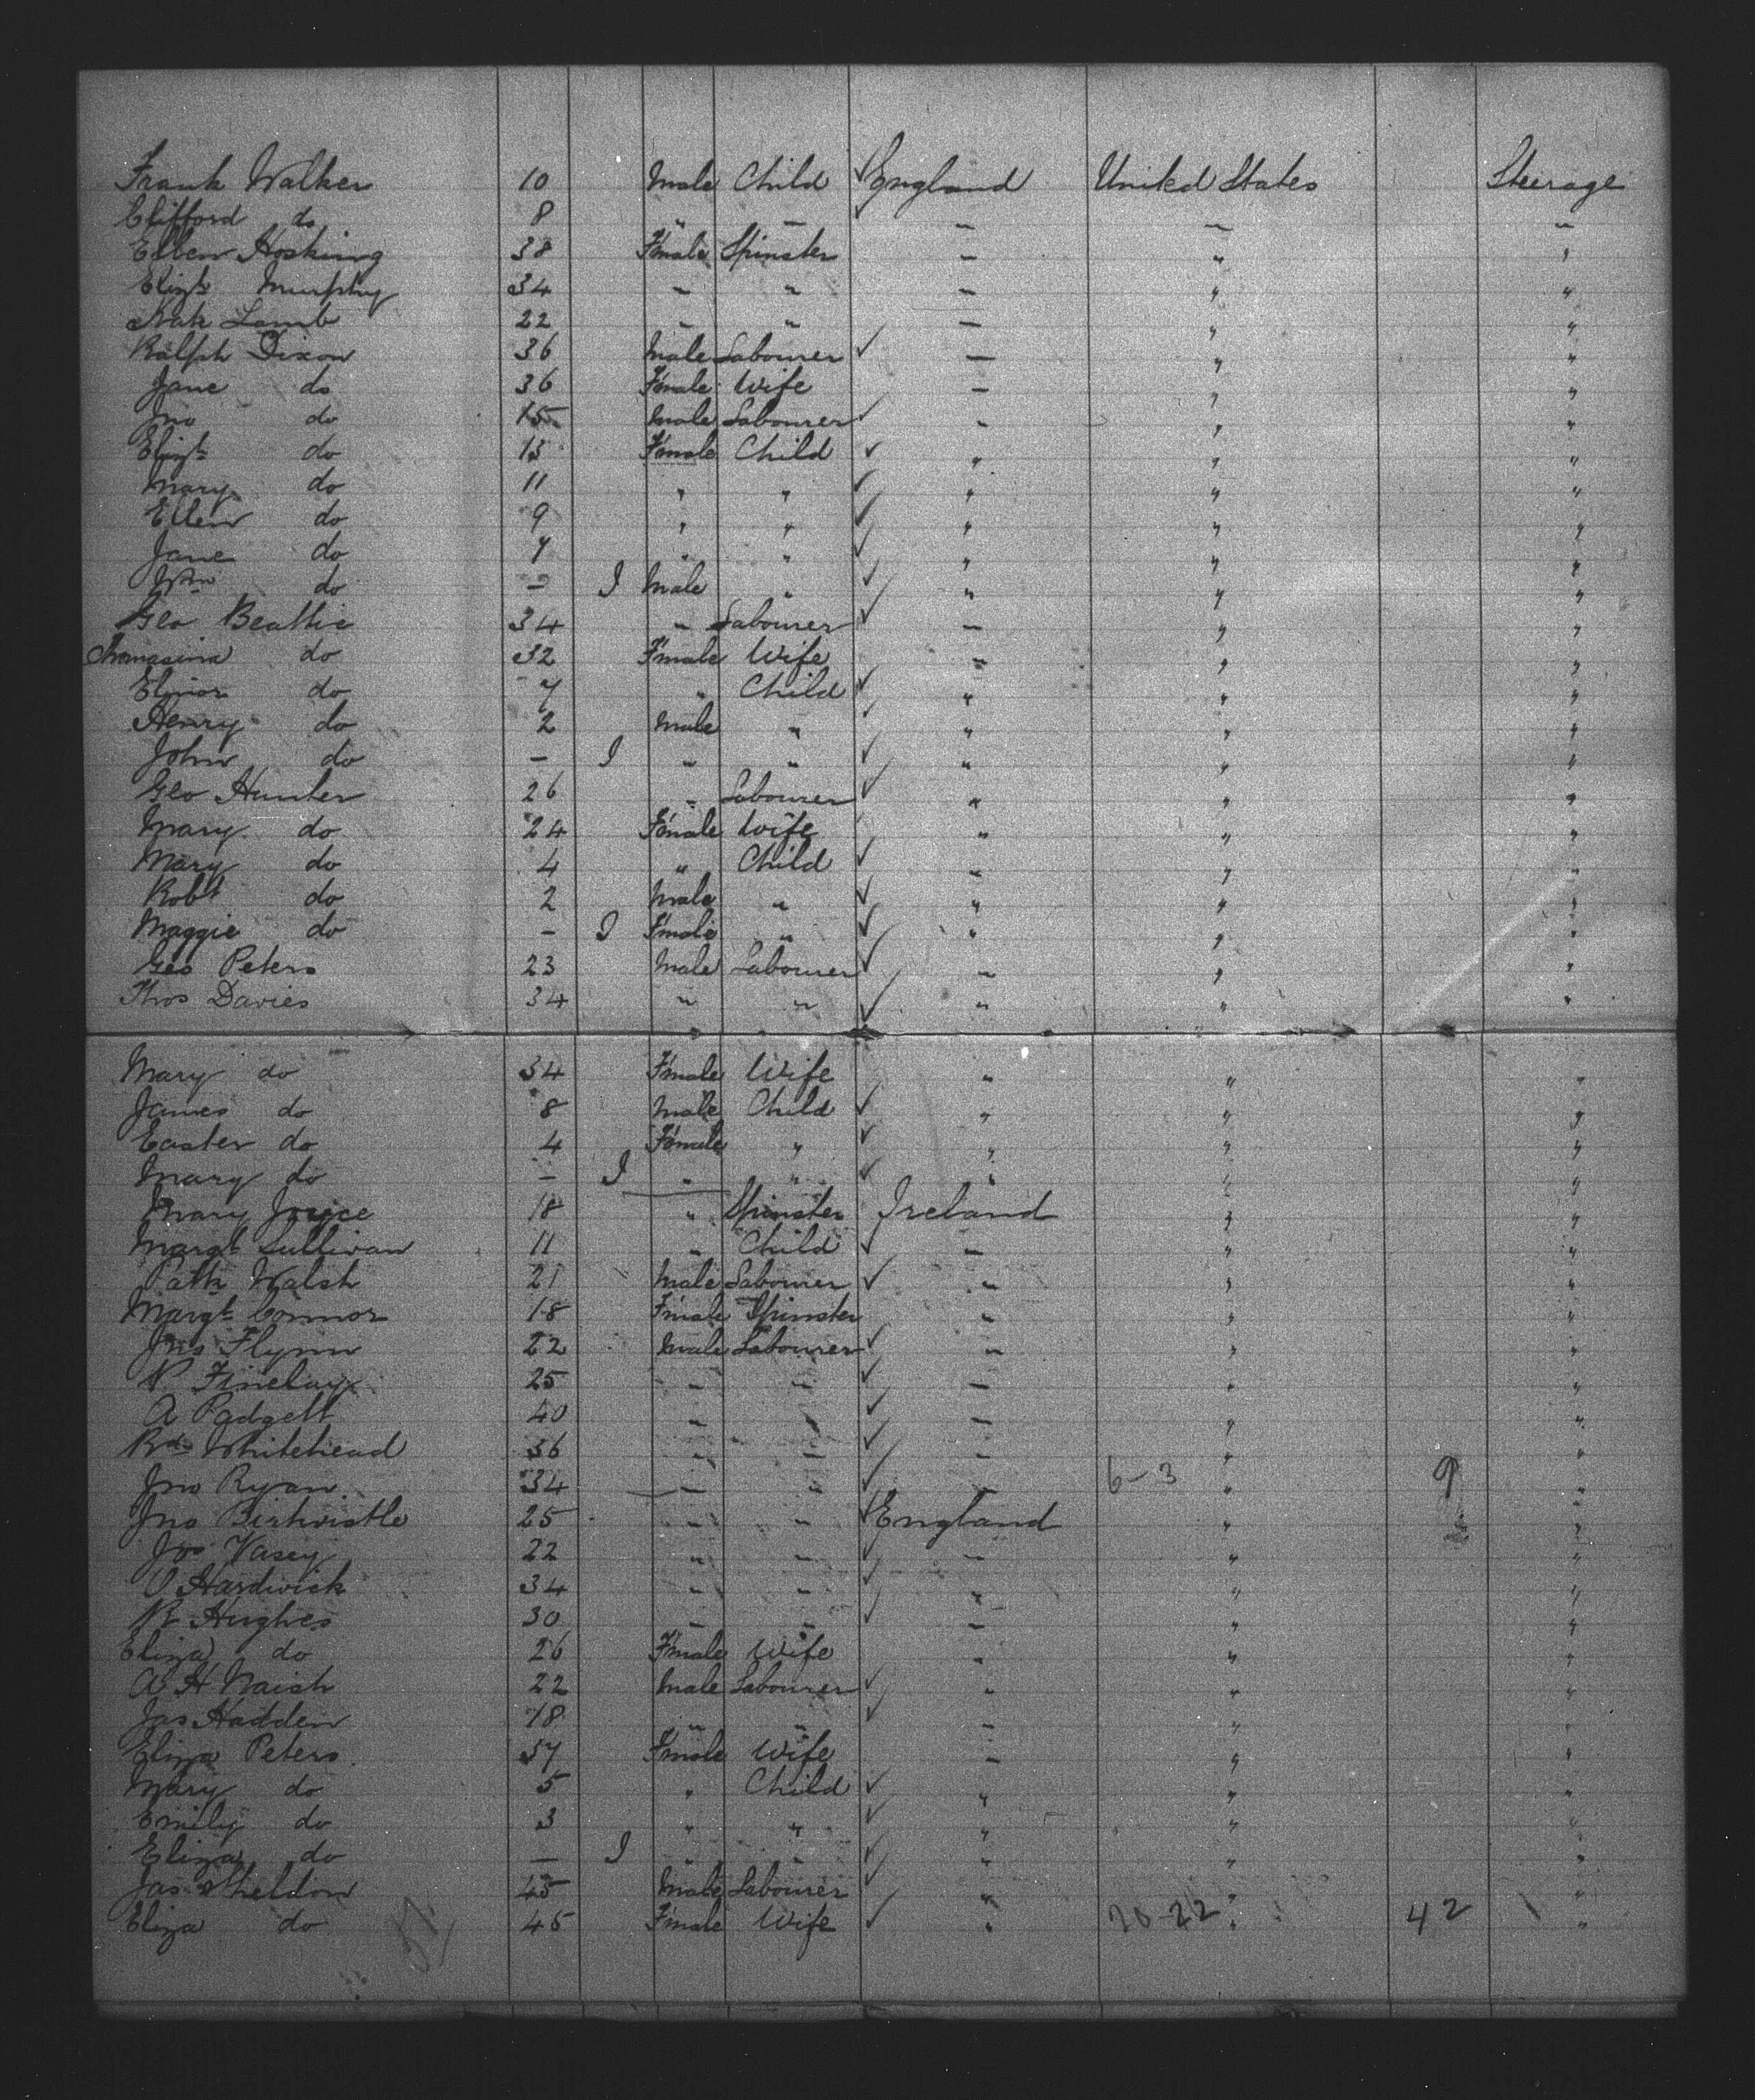 Frank Walker 10 Male Child ✓ England United States Steerage
Clifford do 8 " — ✓ — — "
Ellen Hosking 38 Female Spinster — " "
Elizth Murphy 34 " " — " "
Kate Lamb 22 " " — " "
Ralph Dixon 36 Male Labourer ✓ — " "
Jane do 36 Female Wife — " "
Jno do 15 Male Labourer ✓ " " "
Elizth do 13 Female Child ✓ " " "
Mary do 11 " " ✓ " " "
Ellen do 9 " " ✓ " " "
Jane do 7 " " ✓ " " "
do — I Male " ✓ " " "
Geo Beattie 34 " Labourer ✓ — " "
Thomasina do 32 Female Wife " " "
Elinor do 7 " Child ✓ " " "
Henry do 2 Male " ✓ " " "
John do — I " " ✓ " " "
Geo Hunter 26 " Labourer ✓ " " "
Mary do 24 Female Wife " " "
Mary do 4 " Child ✓ " " "
Robt do 2 Male " ✓ " " "
Maggie do — I Female " ✓ " " "
Geo Peters 23 Male Labourer ✓ " " "
Thos Davies 34 " " ✓ " " "
Mary do 34 Female Wife " " "
James do 8 Male Child ✓ " " "
Easter do 4 Female " ✓ " " "
Mary do — I " " ✓ " " "
Mary Joyce 18 " Spinster Ireland " "
Margt Sullivan 11 " Child ✓ — " "
Patk Walsh 21 Male Labourer ✓ " " "
Margt Connor 18 Female Spinster " " "
Jno Flynn 22 Male Labourer ✓ " " "
P. Finelay 25 " " ✓ — " "
A Padgett 40 " " ✓ — " "
Rd Whitehead 36 " " ✓ — " "
Jno Ryan 34 — " ✓ — 6-3 " 9 "
Jno Birtwistle 25 " " ✓ England " "
Jos Vasey 22 " " ✓ — " "
O Hardwick 34 " " ✓ " " "
R Hughes 30 " " ✓ — " "
Eliza do 26 Female Wife " " "
A H Naish 22 Male Labourer ✓ " " "
Jas Hadden 18 " " ✓ — " "
Eliza Peters 37 Female Wife — " "
Mary do 5 " Child ✓ " " "
Emily do 3 " " ✓ " " "
Eliza do — I " " ✓ " " "
Jas Sheldon 45 Male Labourer ✓ " " "
Eliza do 45 Female Wife ✓ " 20-22 " 42 "